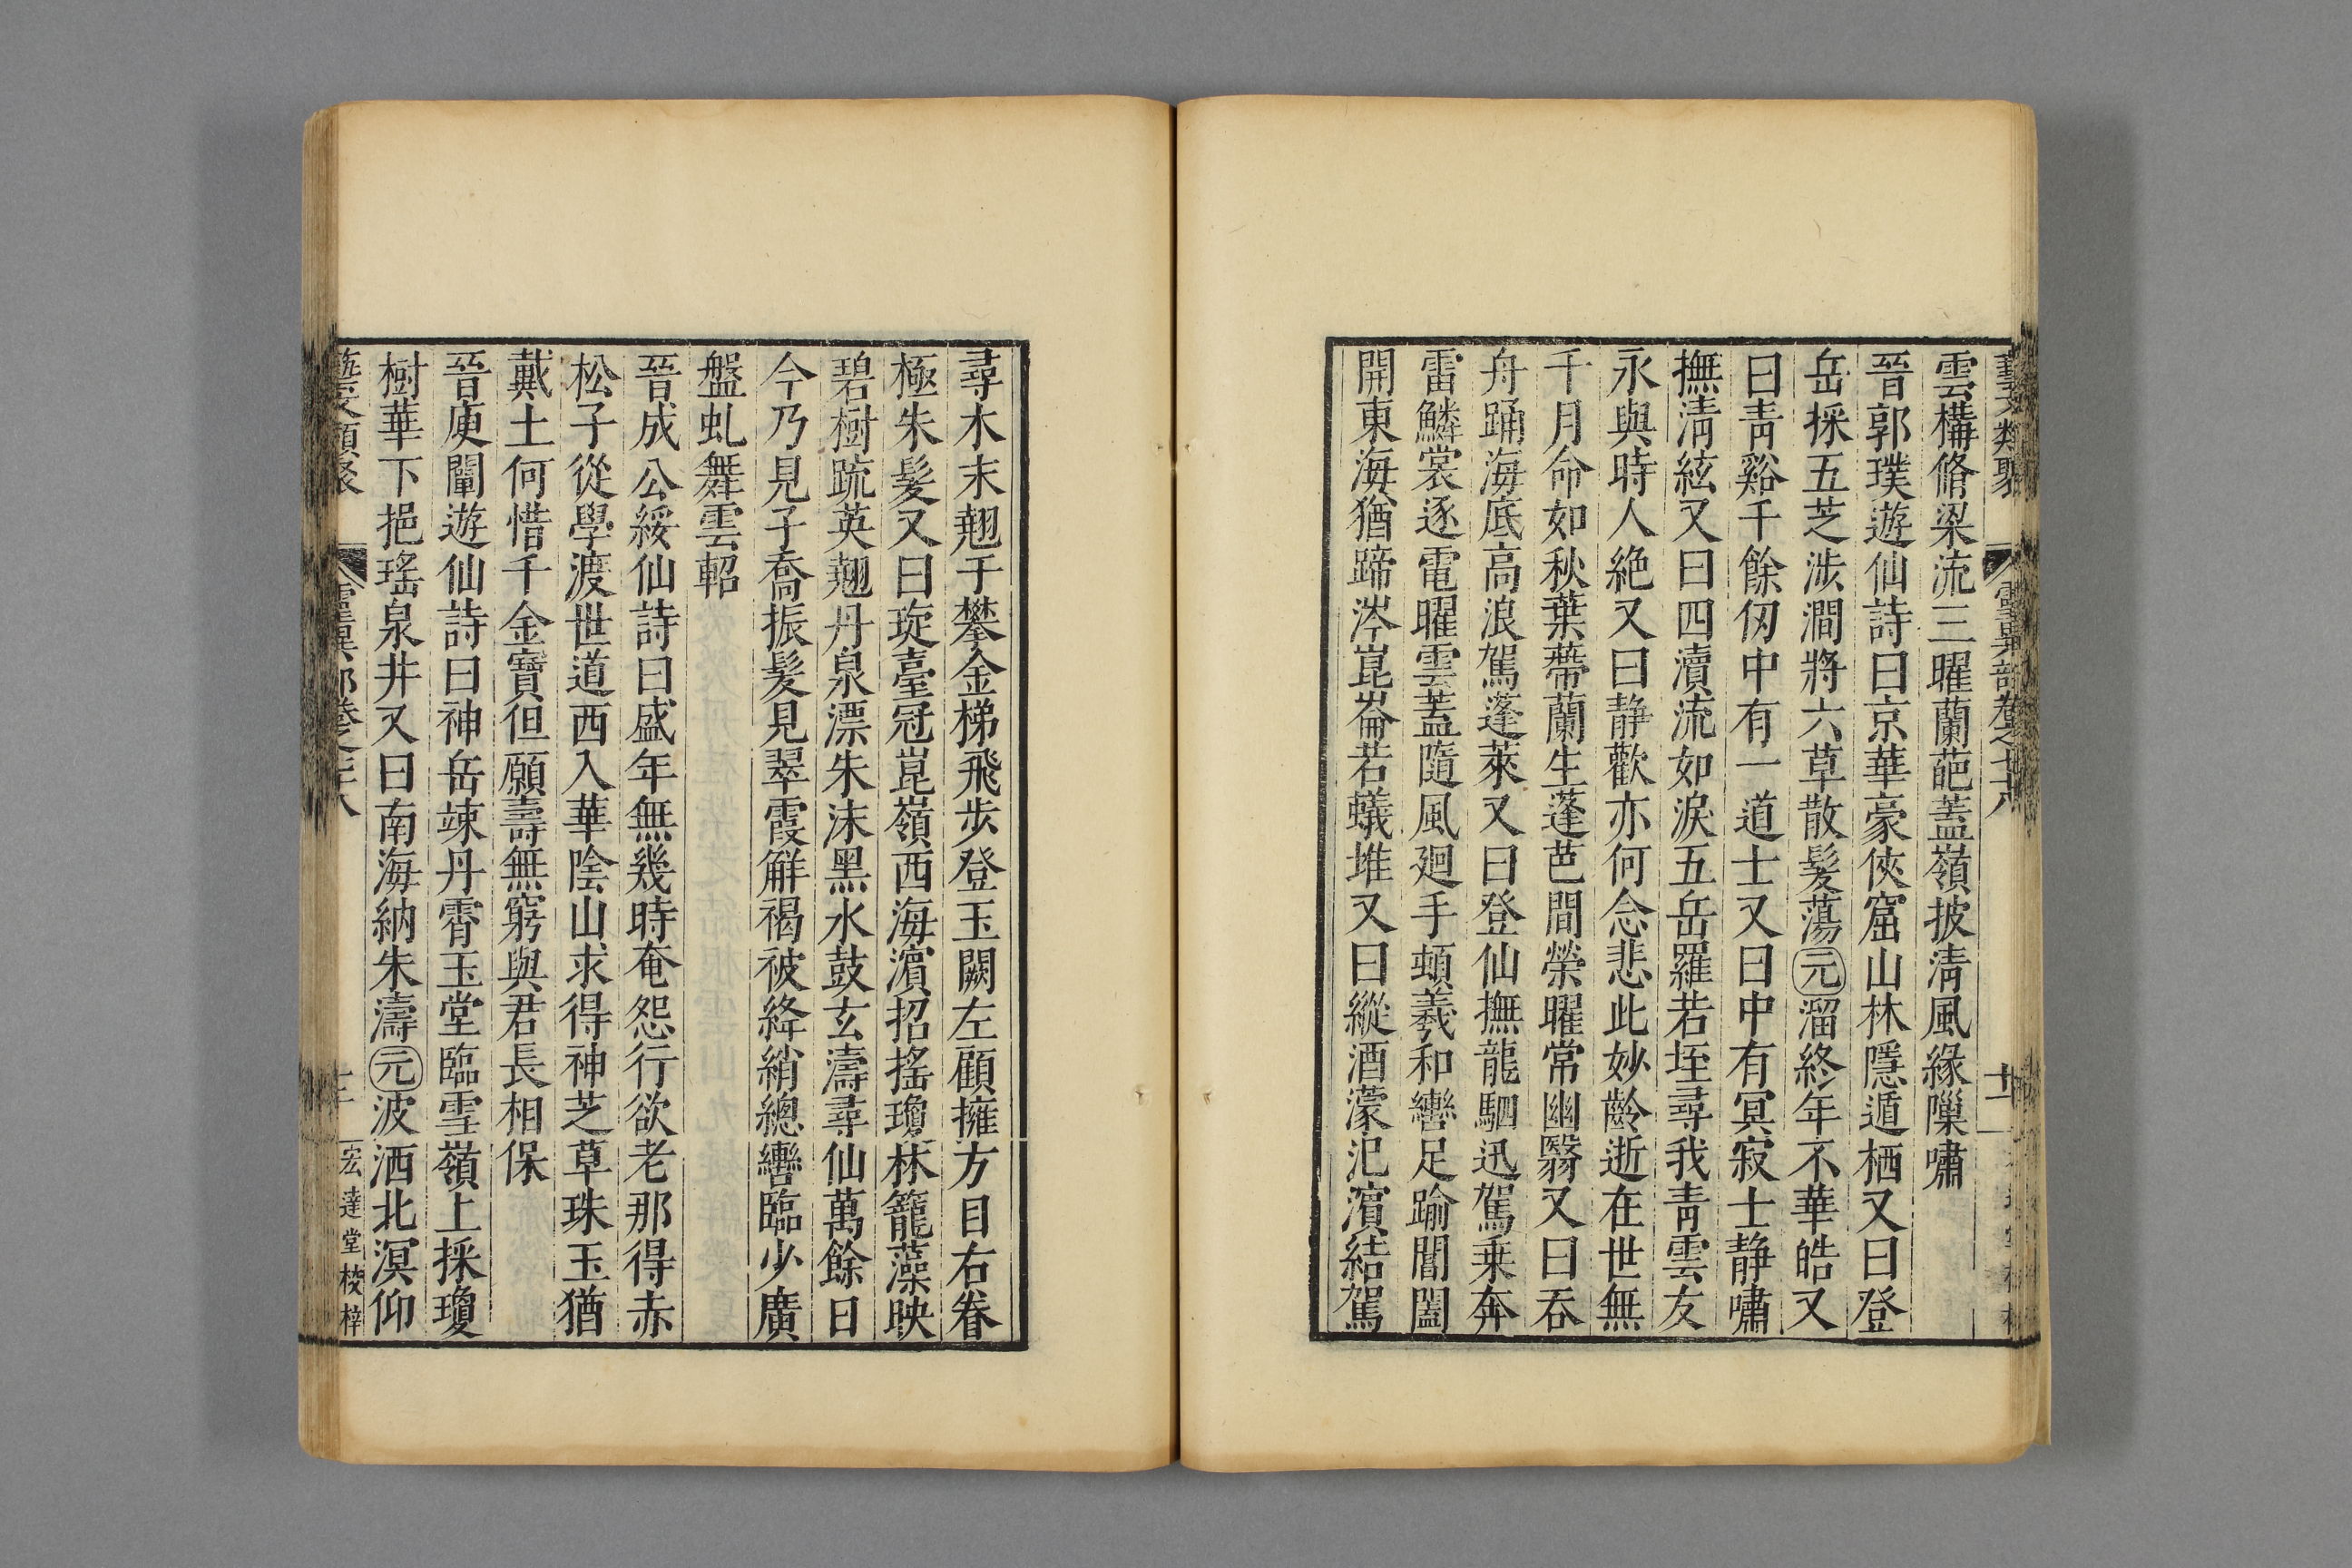 藝文類聚 靈異部卷之七十八 十二
雲構脩梁流三曜蘭葩蓋嶺披淸風緣隟嘯
晉郭璞遊仙詩曰京華豪俠窟山林隱遁栖又曰登
岳採五芝涉澗將六草散髮蕩元溜終年不華皓又
曰靑谿千餘仞中有一道士又曰中有冥寂士静嘯
撫淸絃又曰四瀆流如淚五岳羅若垤尋我靑雲友
永與時人絶又曰静歡亦何念悲此妙齡逝在世無
千月命如秋葉蔕蘭生蓬芭間榮曜常幽翳又曰吞
舟踊海底高浪駕蓬萊又曰登仙撫龍駟迅駕乗奔
雷鱗裳逐電曜雲蓋隨風廻手頓羲和轡足踰閶闔
開東海猶蹄涔崑崙若蟻堆又曰縱酒濛汜濵結駕
尋木末翹手攀金梯飛步登玉闕左顧擁方目右眷
極朱髮又曰琁臺冠崑嶺西海濵招搖瓊林籠藻映
碧樹疏英翹丹泉漂朱沫黑水鼓玄濤尋仙萬餘日
今乃見子喬振髮見翠霞解褐被絳綃總轡臨少廣
盤虬舞雲軺
晉成公綏仙詩曰盛年無幾時奄忽行欲老那得赤
松子從學渡世道西入華陰山求得神芝草珠玉猶
戴土何惜千金寶但願壽無窮與君長相保
晉庾闡遊仙詩曰神岳竦丹霄玉堂臨雪嶺上採瓊
樹華下挹瑤泉井又曰南海納朱濤元波洒北溟仰
藝文類聚 靈異部卷之七十八 十二 宏達堂校梓